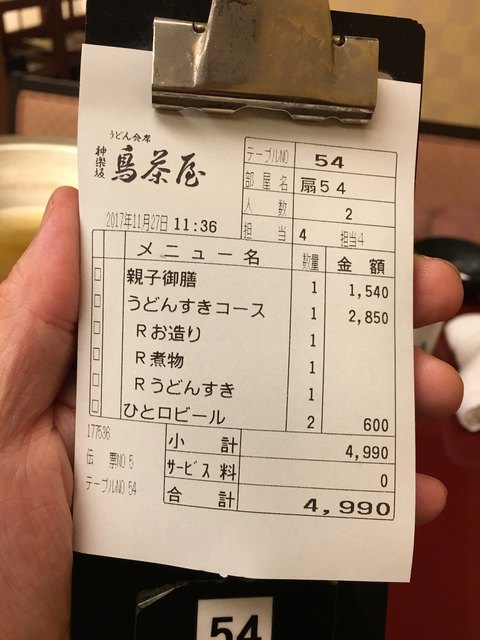 うどん会席
神楽坂 鳥茶屋
テーブルNO 54
部屋名 扇54
人数 2
2017年11月27日 11:36
担当 4 担当4
メニュー名 数量 金額
親子御膳 1 1,540
うどんすきコース 1 2,850
Rお造り 1
R煮物 1
Rうどんすき 1
ひと口ビール 2 600
177536
小計 4,990
伝票NO 5
サービス料 0
テーブルNO 54
合計 4,990
54